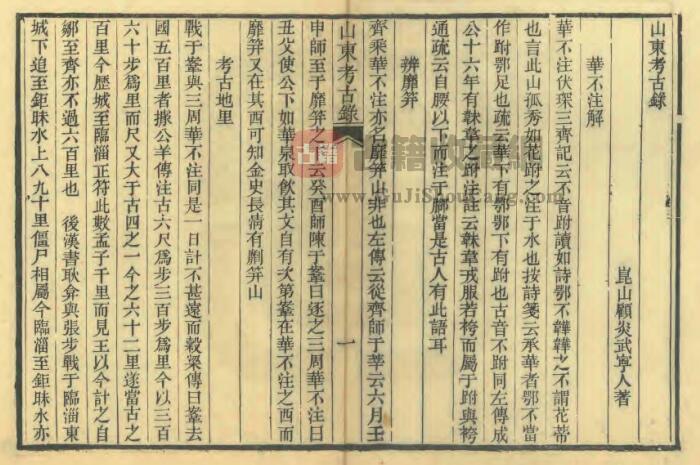 山東考古錄
崑山顧炎武寧人著
華不注解
華不注伏琛三齊記云不音跗讀如詩鄂不韡韡之不謂花蒂
也言此山孤秀如花跗之注于水也按詩箋云承華者鄂不當
作跗鄂足也疏云華下有鄂鄂下有跗也古音不跗同左傳成
公十六年有韎韋之跗注註云韎韋戎服若袴而屬于跗與袴
通疏云自腰以下而注于腳當是古人有此語耳
辨靡笄
齊乘華不注亦名靡笄山非也左傳云從齊師于莘云六月壬
山東考古錄
一
申師至于靡笄之下云癸酉師陳于鞌曰逐之三周華不注曰
丑父使公下如華泉取飲其文自有次第鞌在華不注之西而
靡笄又在其西可知金史長清有劘笄山
考古地里
戰于鞌與三周華不注同是一日計不甚遠而穀梁傳曰鞌去
國五百里者據公羊傳注古六尺爲步三百步爲里今以三百
六十步爲里而尺又大于古四之一今之六十二里遂當古之
百里今歷城至臨淄正符此數孟子千里而見王以今計之自
鄒至齊亦不過六百里也 後漢書耿弇與張步戰于臨淄東
城下追至鉅昧水上八九十里僵尸相屬今臨淄至鉅昧水亦
古籍
古籍收藏網
www.GuJiShouCang.com